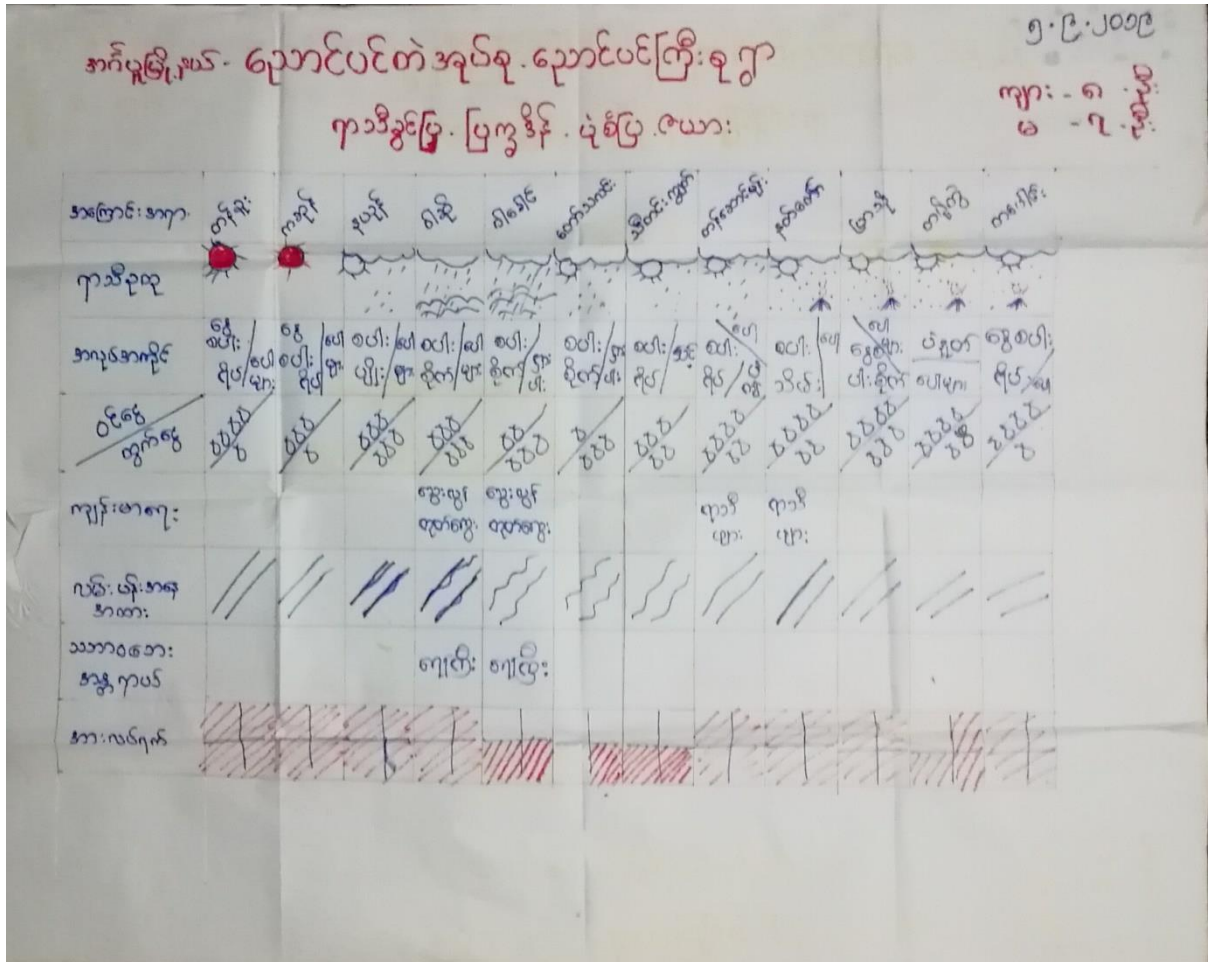 ၅.၉.၂၀၁၉
အင်္ဂပူမြို့နယ် - ညောင်ပင်တဲအုပ်စု . ညောင်ပင်ကြီးစုရွာ
ကျား - ၈ ဦး
မ - ၇ ဦး
ရာသီခွင်ပြ . ပြက္ခဒိန် . ပုံစံပြ ဇယား
အကြောင်းအရာ တန်ခူး ကဆုန် နယုန် ဝါဆို ဝါခေါင် တော်သလင်း သီတင်းကျွတ် တန်ဆောင်မုန်း နတ်တော် ပြာသို တပို့တွဲ တပေါင်း
ရာသီဥတု
အလုပ်အကိုင်
နွေစပါး ရိပ် / ပေါများ
နွေစပါး ရိပ် / ပေါများ
စပါး ပျိုး / ပေါများ
စပါး စိုက် / ပေါများ
စပါး စိုက် / ရှားပါး
စပါး စိုက် / ရှားပါး
စပါး ရိပ် / သင့်
စပါး ရိပ်
စပါး သိမ်း / ပေါ
ပဲနှုတ် ပေါများ
နွေစပါး ရိပ် / ပေါ
ဝင်ငွေ
ထွက်ငွေ
ကျန်းမာရေး
သွေးလွန် တုတ်ကွေး
သွေးလွန် တုတ်ကွေး
ရာသီ ဖျား
ရာသီ ဖျား
လမ်းပန်းအနေ
အထား
သဘာဝဘေး
အန္တရာယ်
ရေကြီး ရေကြီး
အားလပ်ရက်